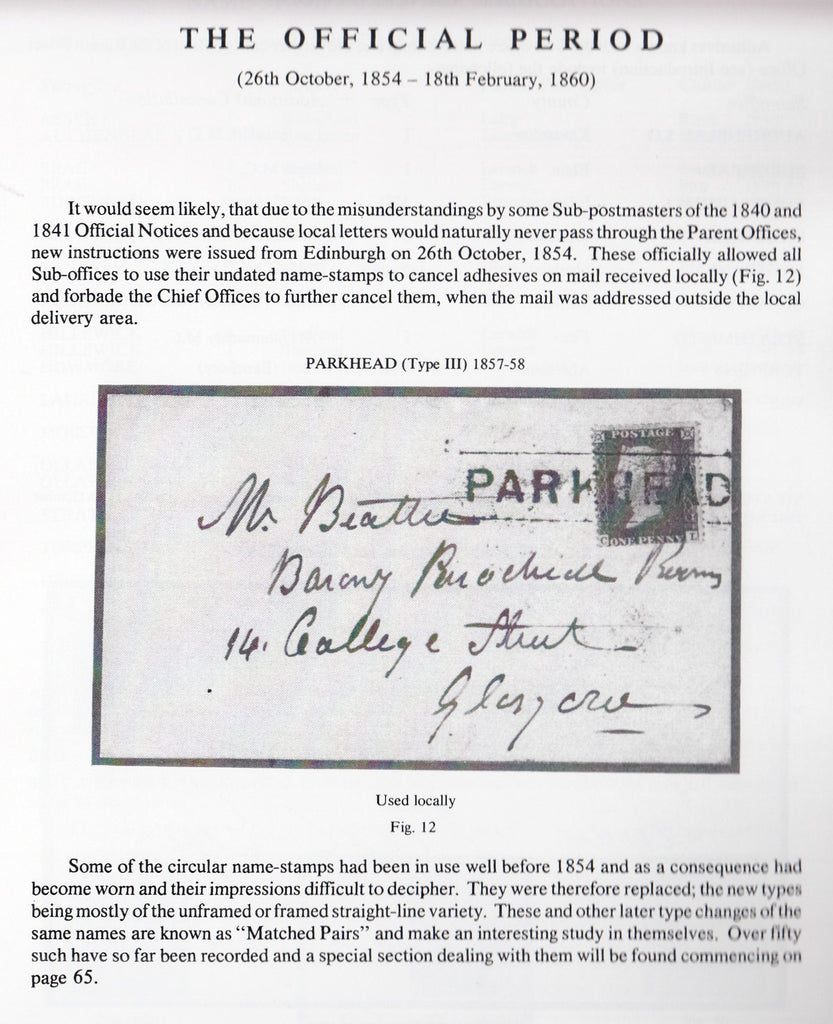 THE OFFICIAL PERIOD
(26th October, 1854 – 18th February, 1860)
It would seem likely, that due to the misunderstandings by some Sub-postmasters of the 1840 and
1841 Official Notices and because local letters would naturally never pass through the Parent Offices,
new instructions were issued from Edinburgh on 26th October, 1854. These officially allowed all
Sub-offices to use their undated name-stamps to cancel adhesives on mail received locally (Fig. 12)
and forbade the Chief Offices to further cancel them, when the mail was addressed outside the local
delivery area.
PARKHEAD (Type III) 1857-58
POSTAGE
PARKHEAD
ONE PENNY
Mr Beattie
Barony Parochial
14. College Street
Glasgow
Used locally
Fig. 12
Some of the circular name-stamps had been in use well before 1854 and as a consequence had
become worn and their impressions difficult to decipher. They were therefore replaced; the new types
being mostly of the unframed or framed straight-line variety. These and other later type changes of the
same names are known as “Matched Pairs” and make an interesting study in themselves. Over fifty
such have so far been recorded and a special section dealing with them will be found commencing on
page 65.